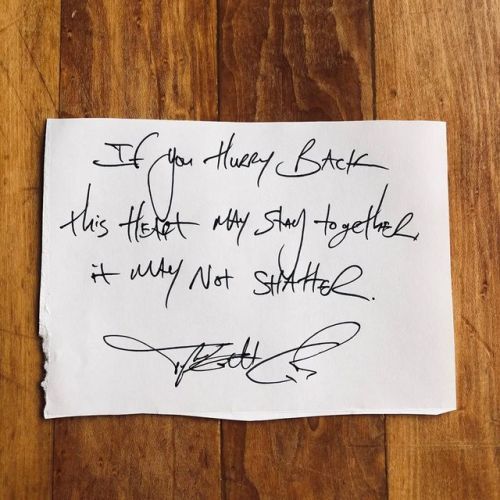 If you Hurry Back
this Heart may stay together,
it may Not Shatter.